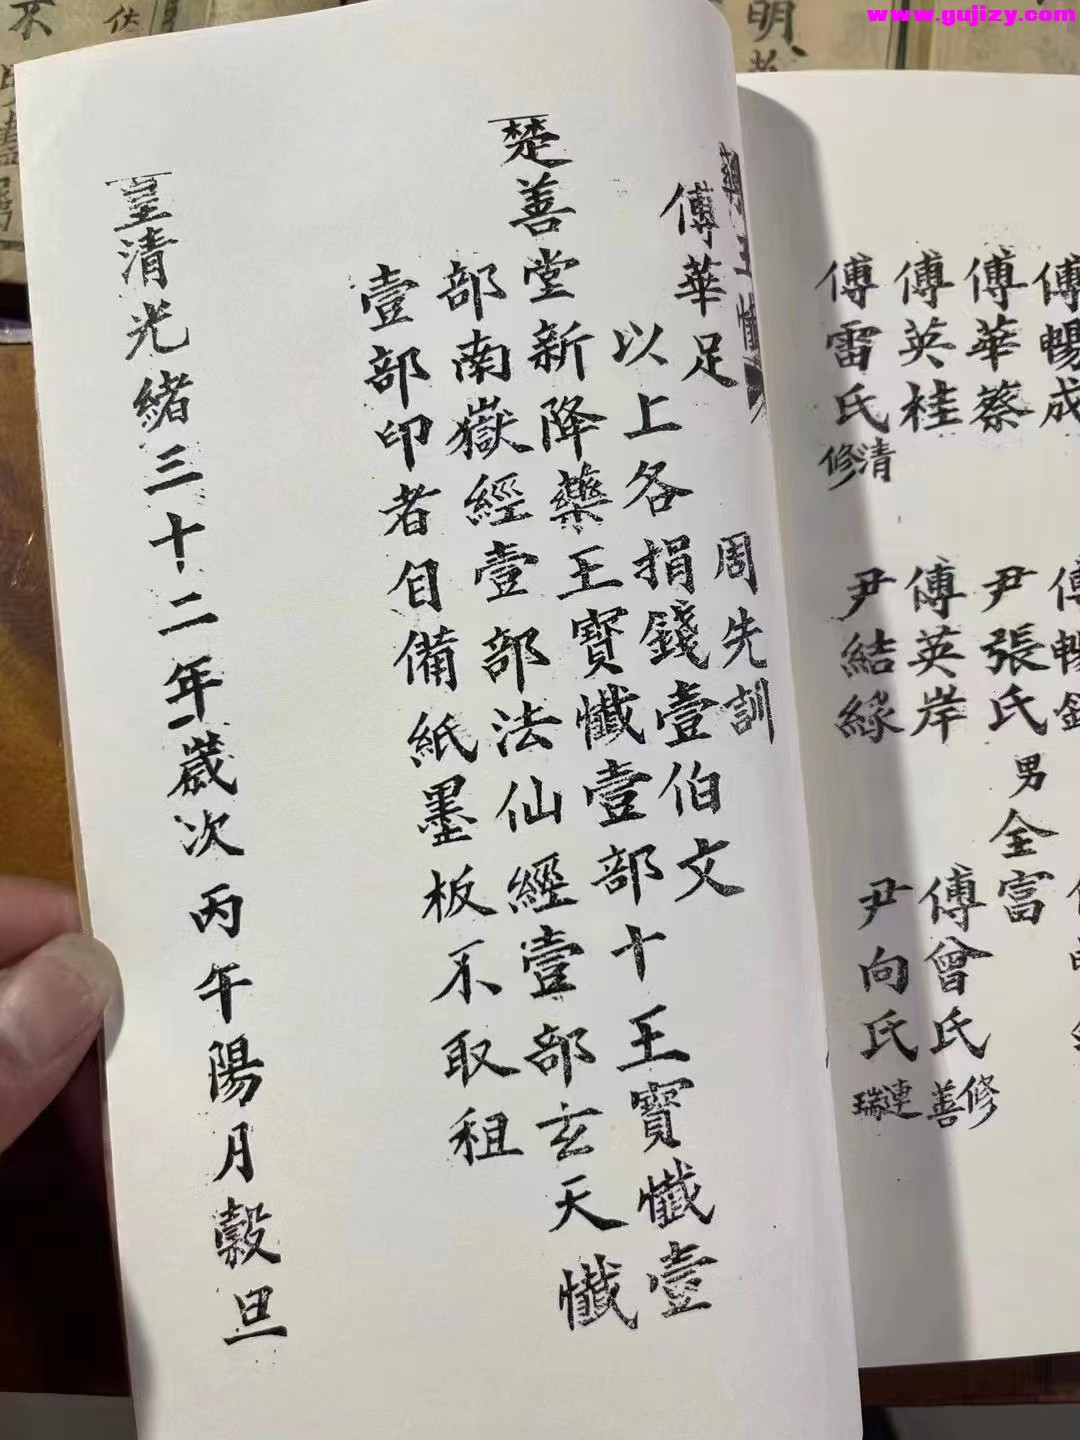 www.gujizy.com
傅暢成
傅華蔡 尹張氏 男全富
傅英桂 傅英岸 傅曾氏 修善
傅雷氏 清修 尹結緣 尹向氏 連瑞
傅華足 周先訓
以上各捐錢壹伯文
楚善堂新降藥王寶懺壹部十王寶懺壹
部南嶽經壹部法仙經壹部玄天懺
壹部印者自備紙墨板不取租
皇清光緒三十二年歲次丙午陽月穀旦